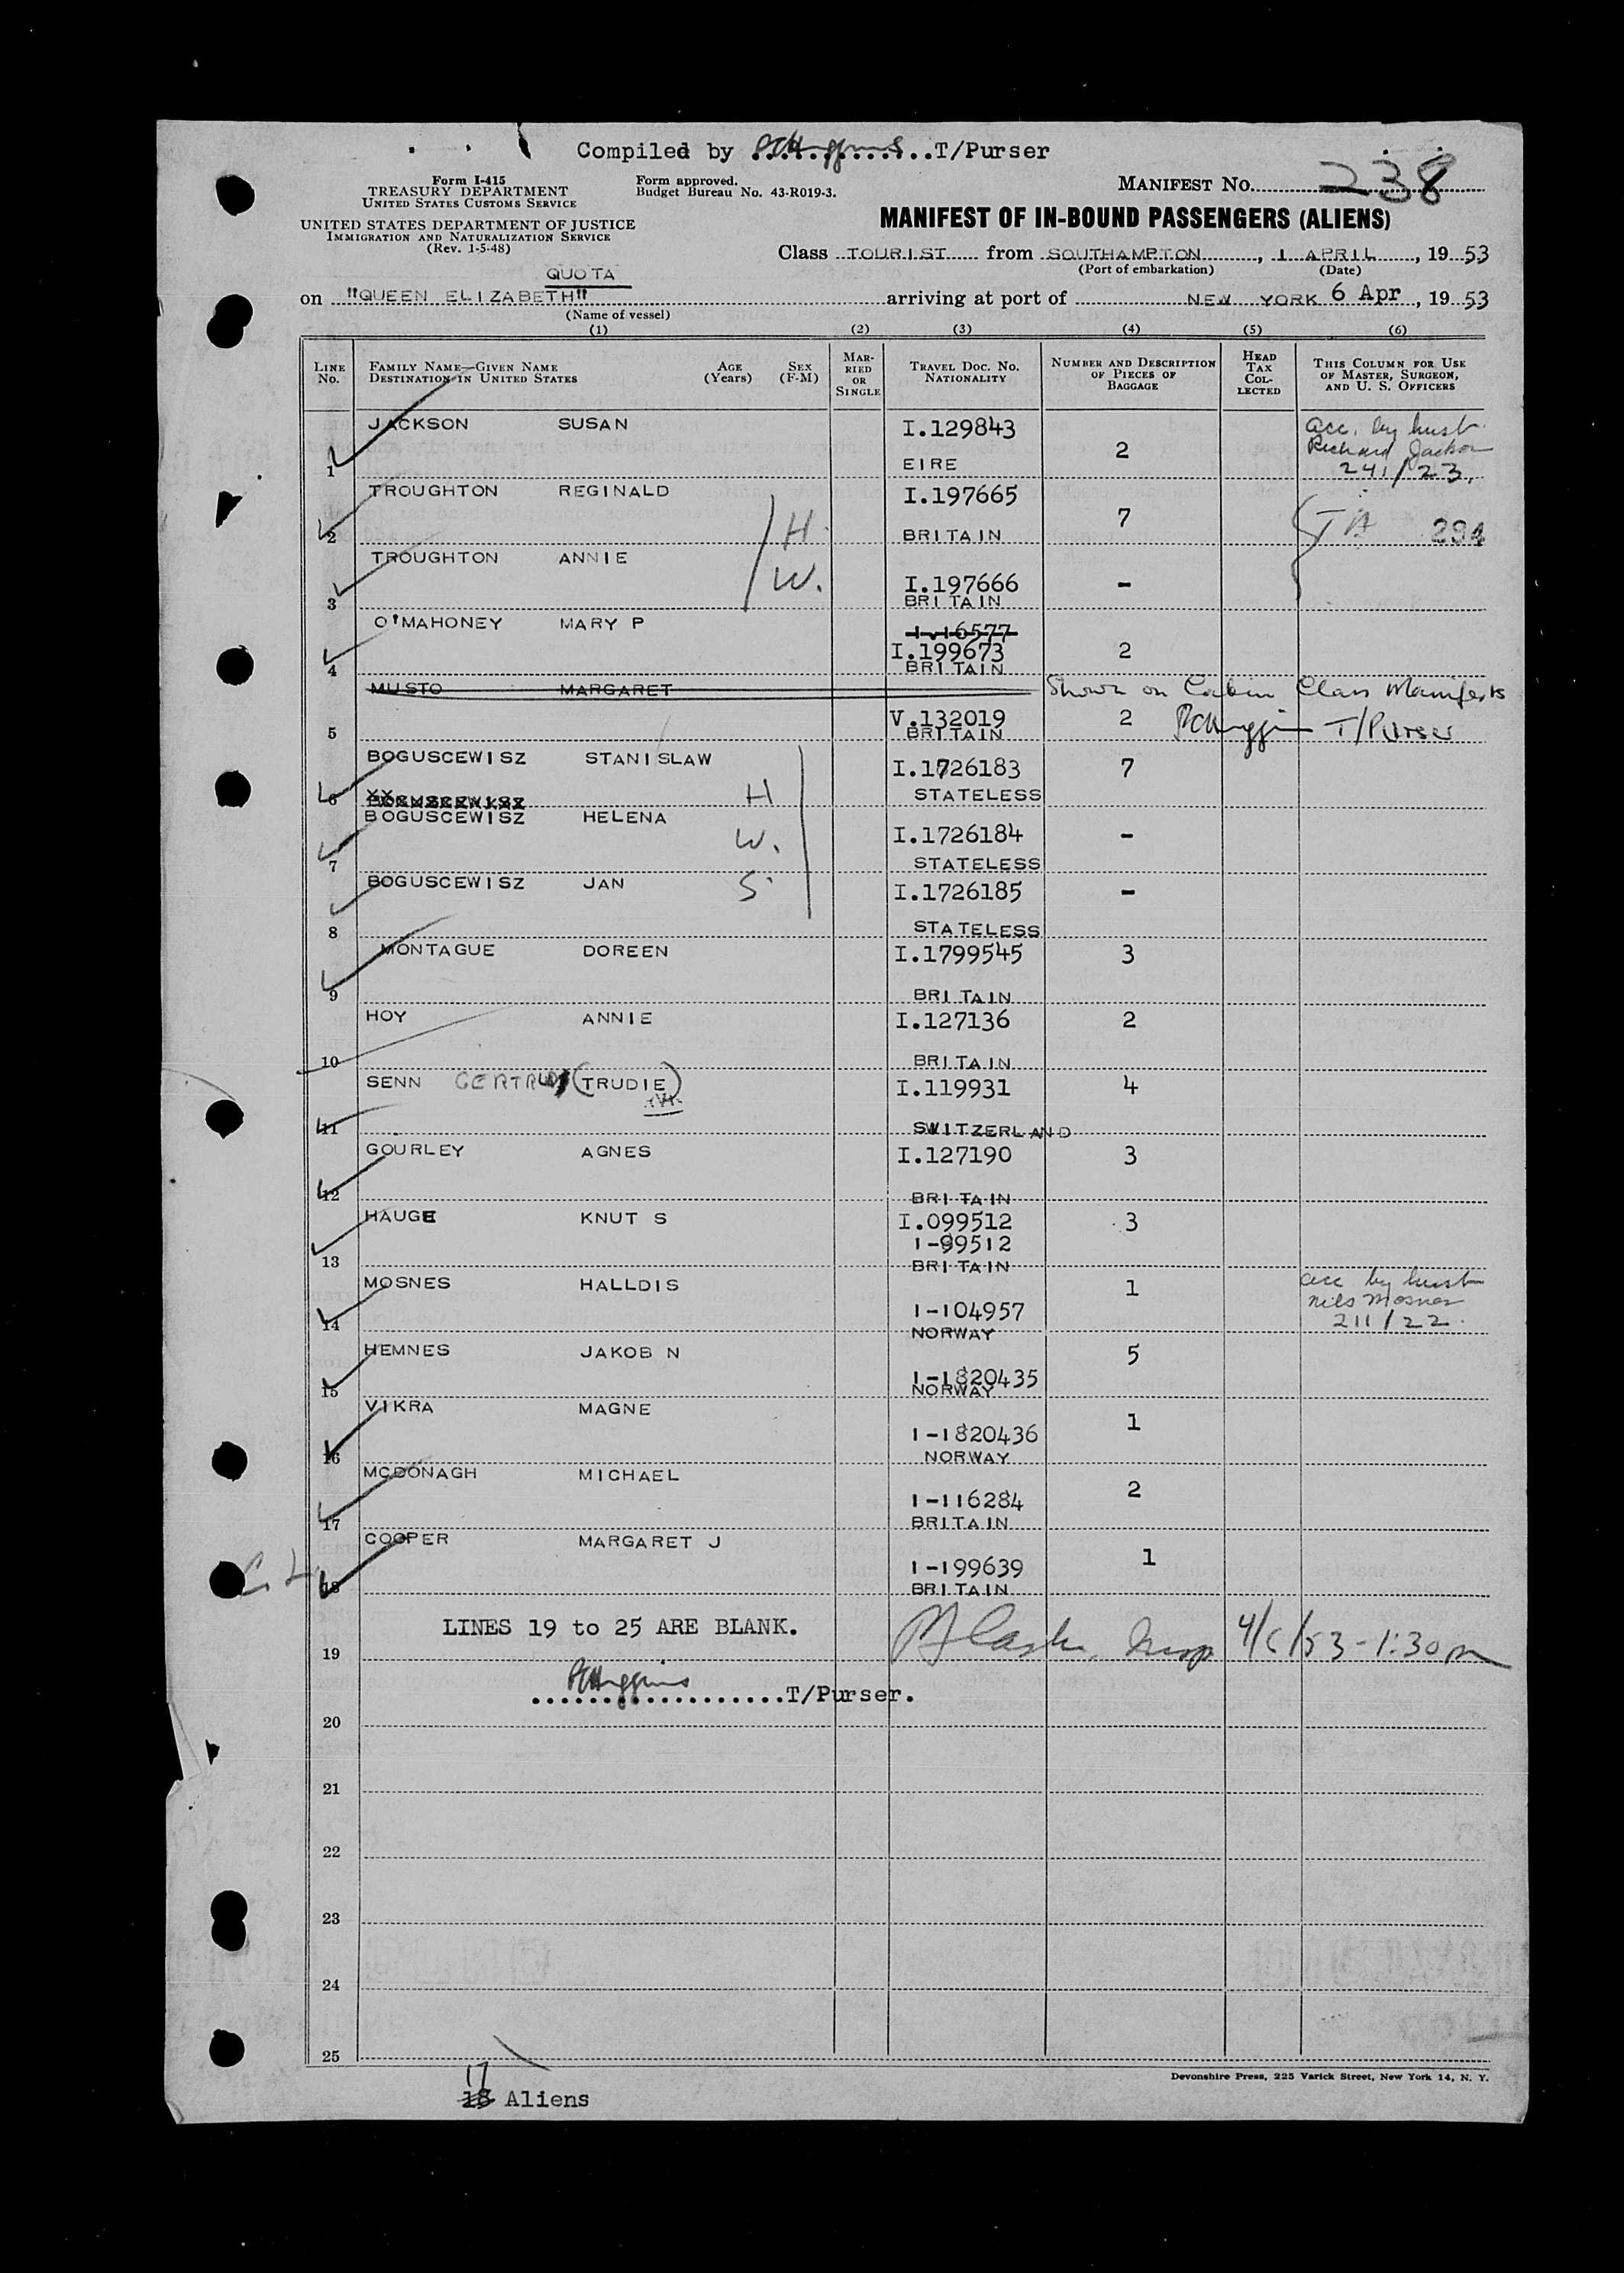 Compiled by ..............T/Purser
Form I-415
TREASURY DEPARTMENT
UNITED STATES CUSTOMS SERVICE
Form approved.
Budget Bureau No. 43-R019-3.
MANIFEST NO. 238
UNITED STATES DEPARTMENT OF JUSTICE
IMMIGRATION AND NATURALIZATION SERVICE
(Rev. 1-5-48)
MANIFEST OF IN-BOUND PASSENGERS (ALIENS)
Class TOURIST from SOUTHAMPTON, 1 APRIL, 1953
(Port of embarkation) (Date)
QUOTA
on "QUEEN ELIZABETH" arriving at port of NEW YORK 6 Apr, 1953
(Name of vessel)
(1) (2) (3) (4) (5) (6)
LINE NO. FAMILY NAME—GIVEN NAME DESTINATION IN UNITED STATES AGE (Years) SEX (F-M) MARRIED OR SINGLE TRAVEL DOC. NO. NATIONALITY NUMBER AND DESCRIPTION OF PIECES OF BAGGAGE HEAD TAX COLLECTED THIS COLUMN FOR USE OF MASTER, SURGEON, AND U. S. OFFICERS
JACKSON SUSAN I.129843 acc. by husb.
1 EIRE 2 Richard Jackson
241/23.
TROUGHTON REGINALD I.197665
2 H. BRITAIN 7 294
TROUGHTON ANNIE
3 W. I.197666 -
BRITAIN
O'MAHONEY MARY P 1.16577
I.199673 2
4 BRITAIN
MUSTO MARGARET Shown on Cabin Class Manifests
5 V.132019 2 T/Purser
BRITAIN
BOGUSCEWISZ STANISLAW I.1726183 7
6 H STATELESS
BOGUSCEWISZ HELENA
W. I.1726184 -
7 STATELESS
BOGUSCEWISZ JAN S. I.1726185 -
8 STATELESS
MONTAGUE DOREEN I.1799545 3
9 BRITAIN
HOY ANNIE I.127136 2
10 BRITAIN
SENN (TRUDIE) I.119931 4
11 SWITZERLAND
GOURLEY AGNES I.127190 3
12 BRITAIN
HAUGE KNUT S I.099512 3
1-99512
13 BRITAIN
MOSNES HALLDIS 1 acc by husb
1-104957 Nils Mosnes
14 NORWAY 211/22.
HEMNES JAKOB N 5
1-1820435
15 NORWAY
VIKRA MAGNE 1
1-1820436
16 NORWAY
MCDONAGH MICHAEL 2
1-116284
17 BRITAIN
COOPER MARGARET J 1
1-199639
18 BRITAIN
LINES 19 to 25 ARE BLANK. 4/6/53-1:30 pm
19
...................T/Purser.
20
21
22
23
24
25
Devonshire Press, 225 Varick Street, New York 14, N. Y.
17
18 Aliens